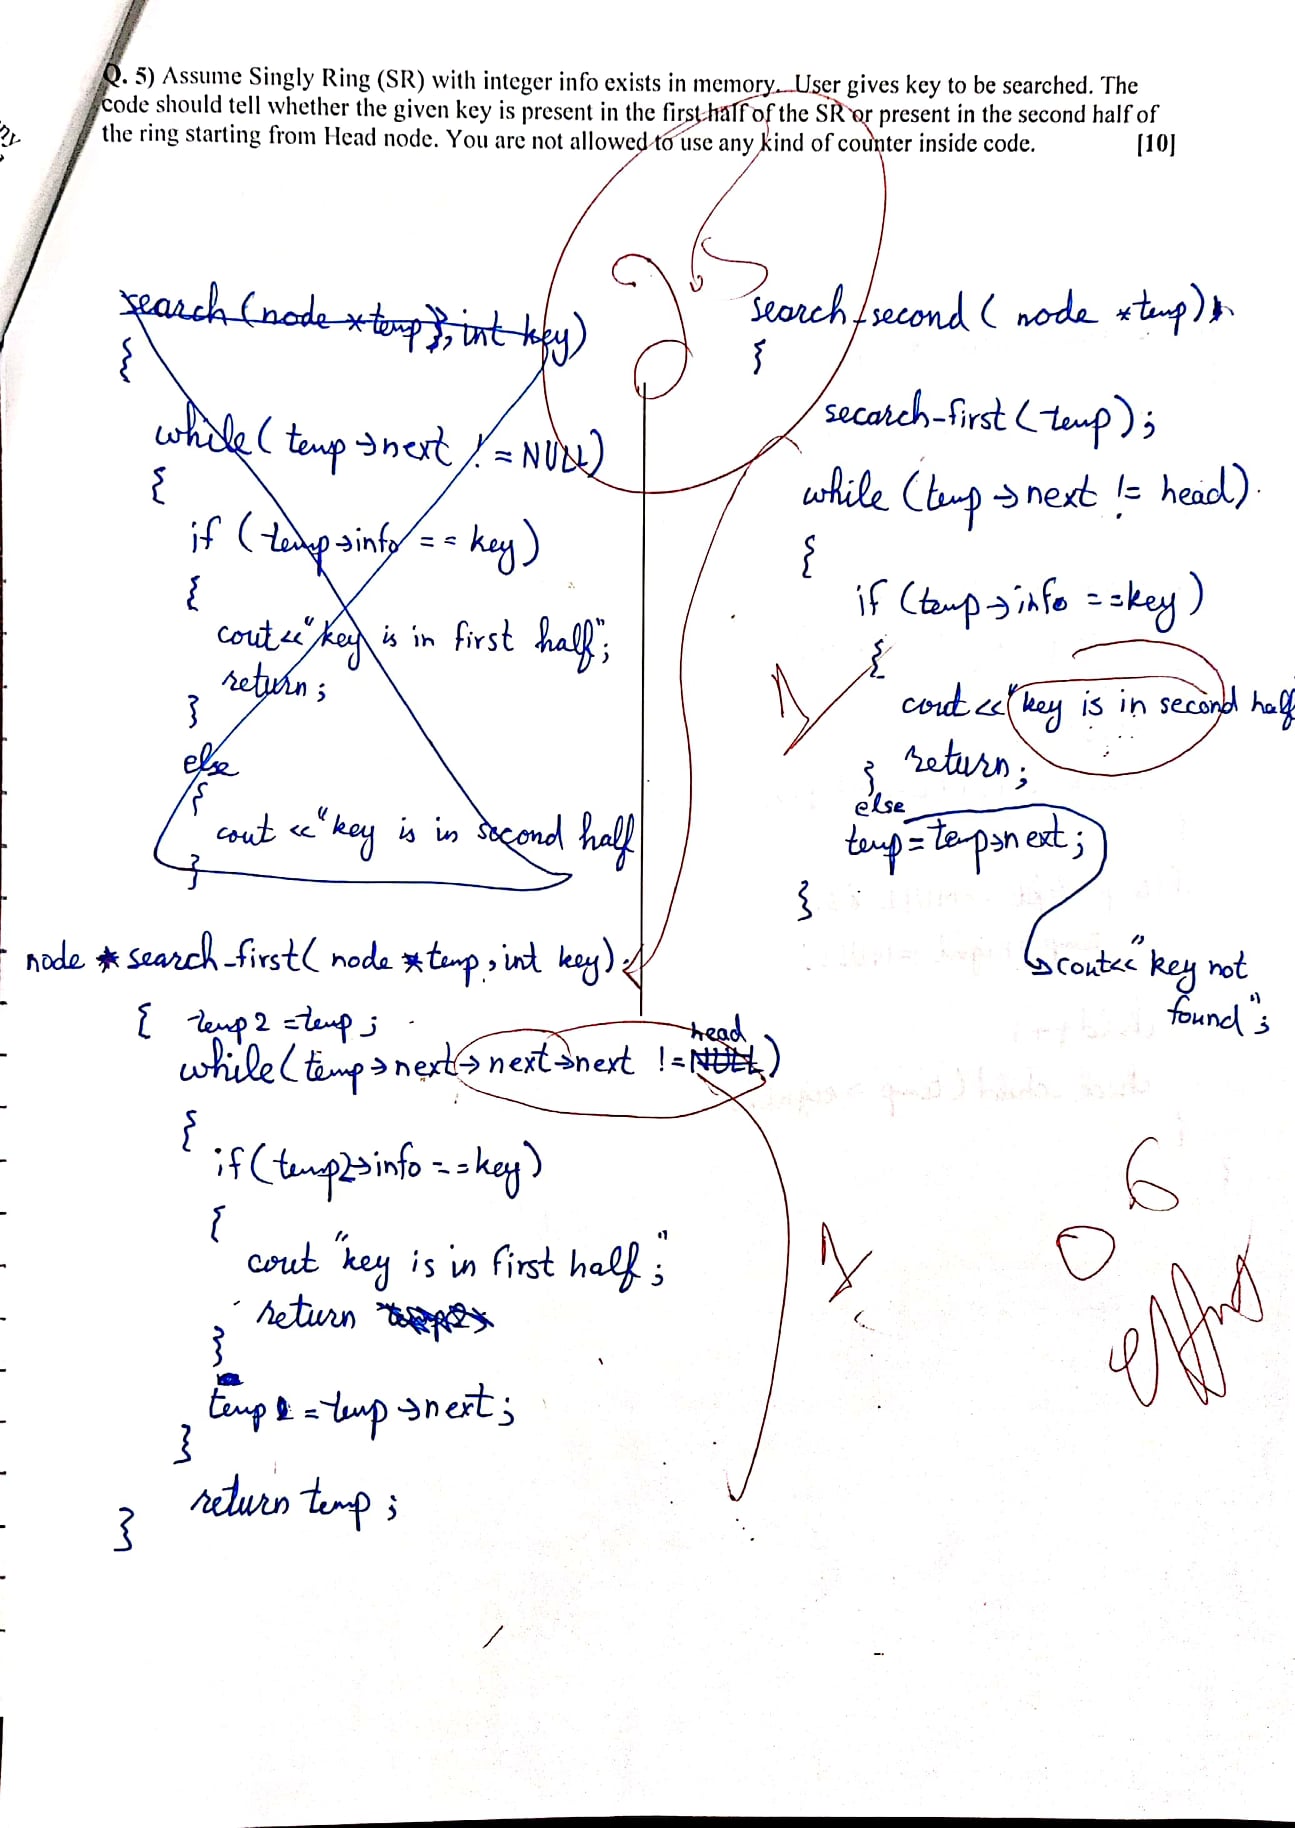 Q. 5) Assume Singly Ring (SR) with integer info exists in memory. User gives key to be searched. The
code should tell whether the given key is present in the first half of the SR or present in the second half of
the ring starting from Head node. You are not allowed to use any kind of counter inside code. [10]
search (node *temp}, int key)
{
while( temp→next != NULL)
{
if ( temp→info == key)
{
cout<<"key is in first half";
return;
}
else
{
cout <<"key is in second half
}
node * search-first( node *temp, int key)
{ temp2 = temp;
head
while(temp→next→next→next != NULL)
{
if(temp2→info == key)
{
cout "key is in first half;"
return
}
temp = temp→next;
}
return temp;
}
search-second ( node *temp)
{
secarch-first (temp);
while (temp→next != head)
{
if (temp→info ==key)
{
cout <<"key is in second half
return;
}
else
temp=temp→next;
}
cout<<"key not
found";
1
1
6
0